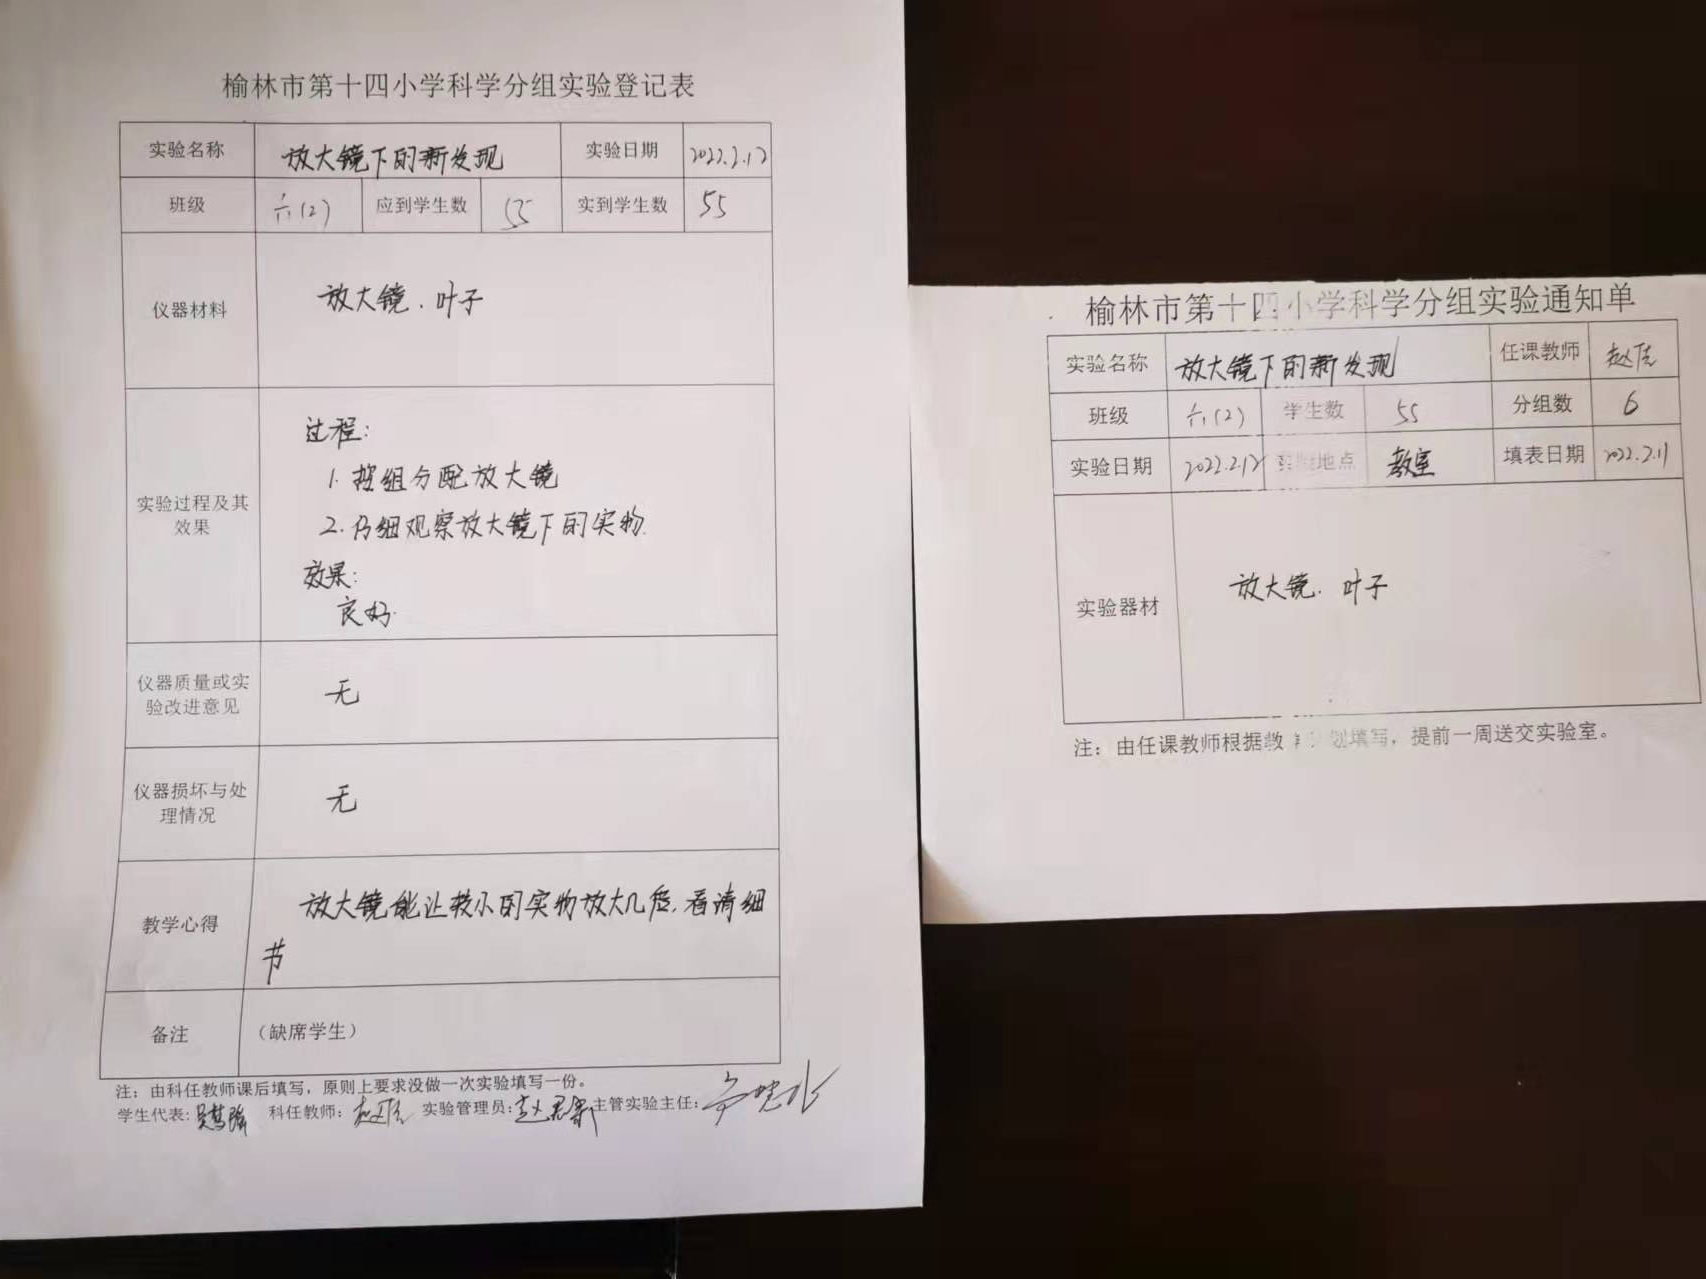 榆林市第十四小学科学分组实验登记表
实验名称 放大镜下的新发现 实验日期 2022.2.12
班级 六(2) 应到学生数 55 实到学生数 55
仪器材料 放大镜、叶子
实验过程及其
效果
过程:
1. 按组分配放大镜
2. 仔细观察放大镜下的实物.
效果:
良好.
仪器质量或实
验改进意见
无
仪器损坏与处
理情况
无
教学心得
放大镜能让较小的实物放大几倍,看清细
节
备注 (缺席学生)
注:由科任教师课后填写,原则上要求没做一次实验填写一份。
学生代表: 科任教师: 实验管理员: 主管实验主任:
榆林市第十四小学科学分组实验通知单
实验名称 放大镜下的新发现 任课教师
班级 六(2) 学生数 55 分组数 6
实验日期 2022.2.12 实验地点 教室 填表日期 2022.2.11
实验器材 放大镜. 叶子
注:由任课教师根据教 划填写,提前一周送交实验室。